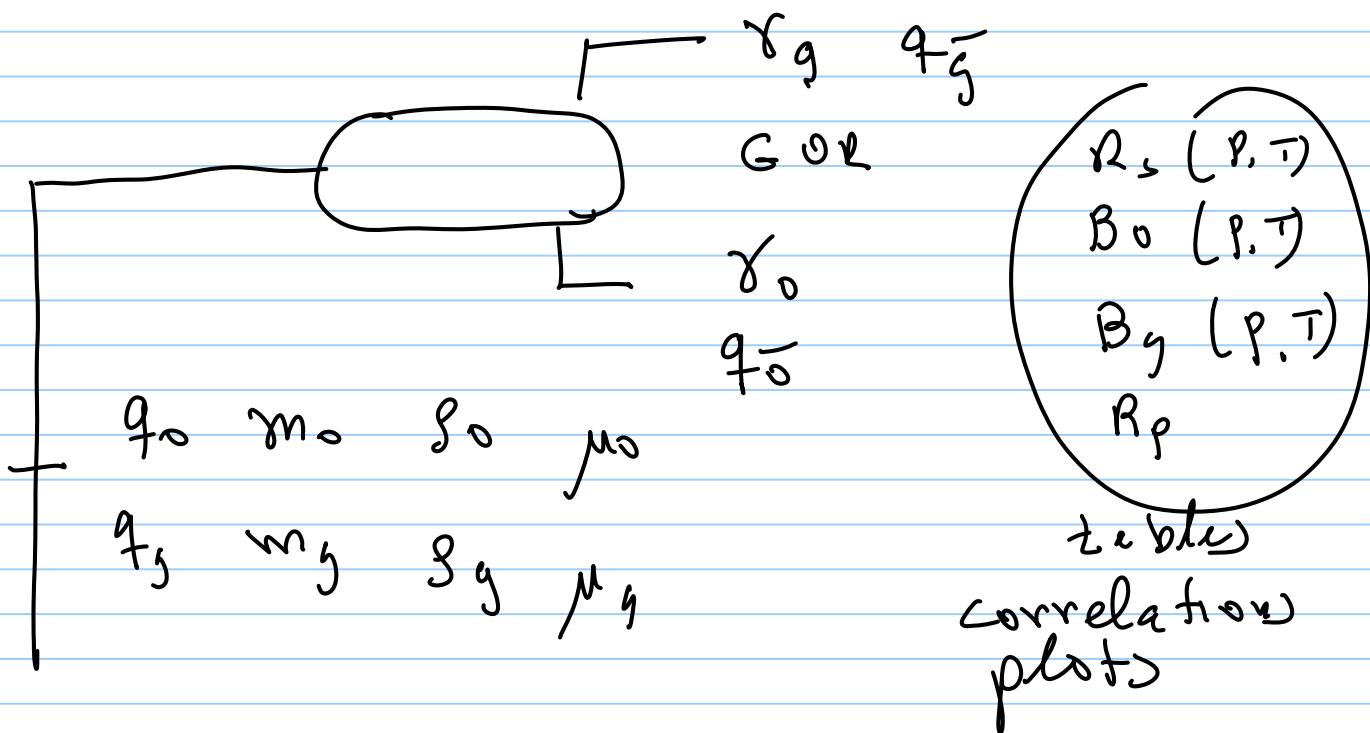 γg q_g̅
GOR
γo
q_o̅
qo mo ρo μo
qg mg ρg μg
Rs (P,T)
Bo (P,T)
Bg (P,T)
Rp
tables
correlations
plots